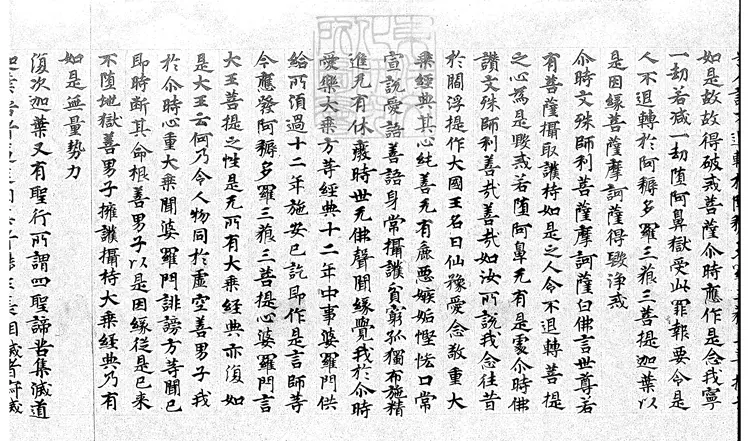 如是故故得破戒菩薩尒時應作是念我寧
一劫若減一劫墮阿鼻獄受此罪報要令是
人不退轉於阿耨多羅三藐三菩提迦葉以
是因緣菩薩摩訶薩得毀淨戒
尒時文殊師利菩薩摩訶薩白佛言世尊若
有菩薩攝取護持如是之人令不退轉菩提
之心為是毀戒若墮阿鼻无有是處尒時佛
讚文殊師利善哉善哉如汝所說我念往昔
於閻浮提作大國王名曰仙豫愛念敬重大
乘經典其心純善无有麁惡嫉妬慳悋口常
宣說愛語善語身常攝護貧窮孤獨布施精
進无有休廢時世无佛聲聞緣覺我於尒時
愛樂大乘方等經典十二年中事婆羅門供
給所須過十二年施安已訖即作是言師等
今應發阿耨多羅三藐三菩提心婆羅門言
大王菩提之性是无所有大乘經典亦復如
是大王云何乃令人物同於虛空善男子我
於尒時心重大乘聞婆羅門誹謗方等聞已
即時斷其命根善男子以是因緣從是已來
不墮地獄善男子擁護攝持大乘經典乃有
如是無量勢力
復次迦葉又有聖行所謂四聖諦苦集滅道